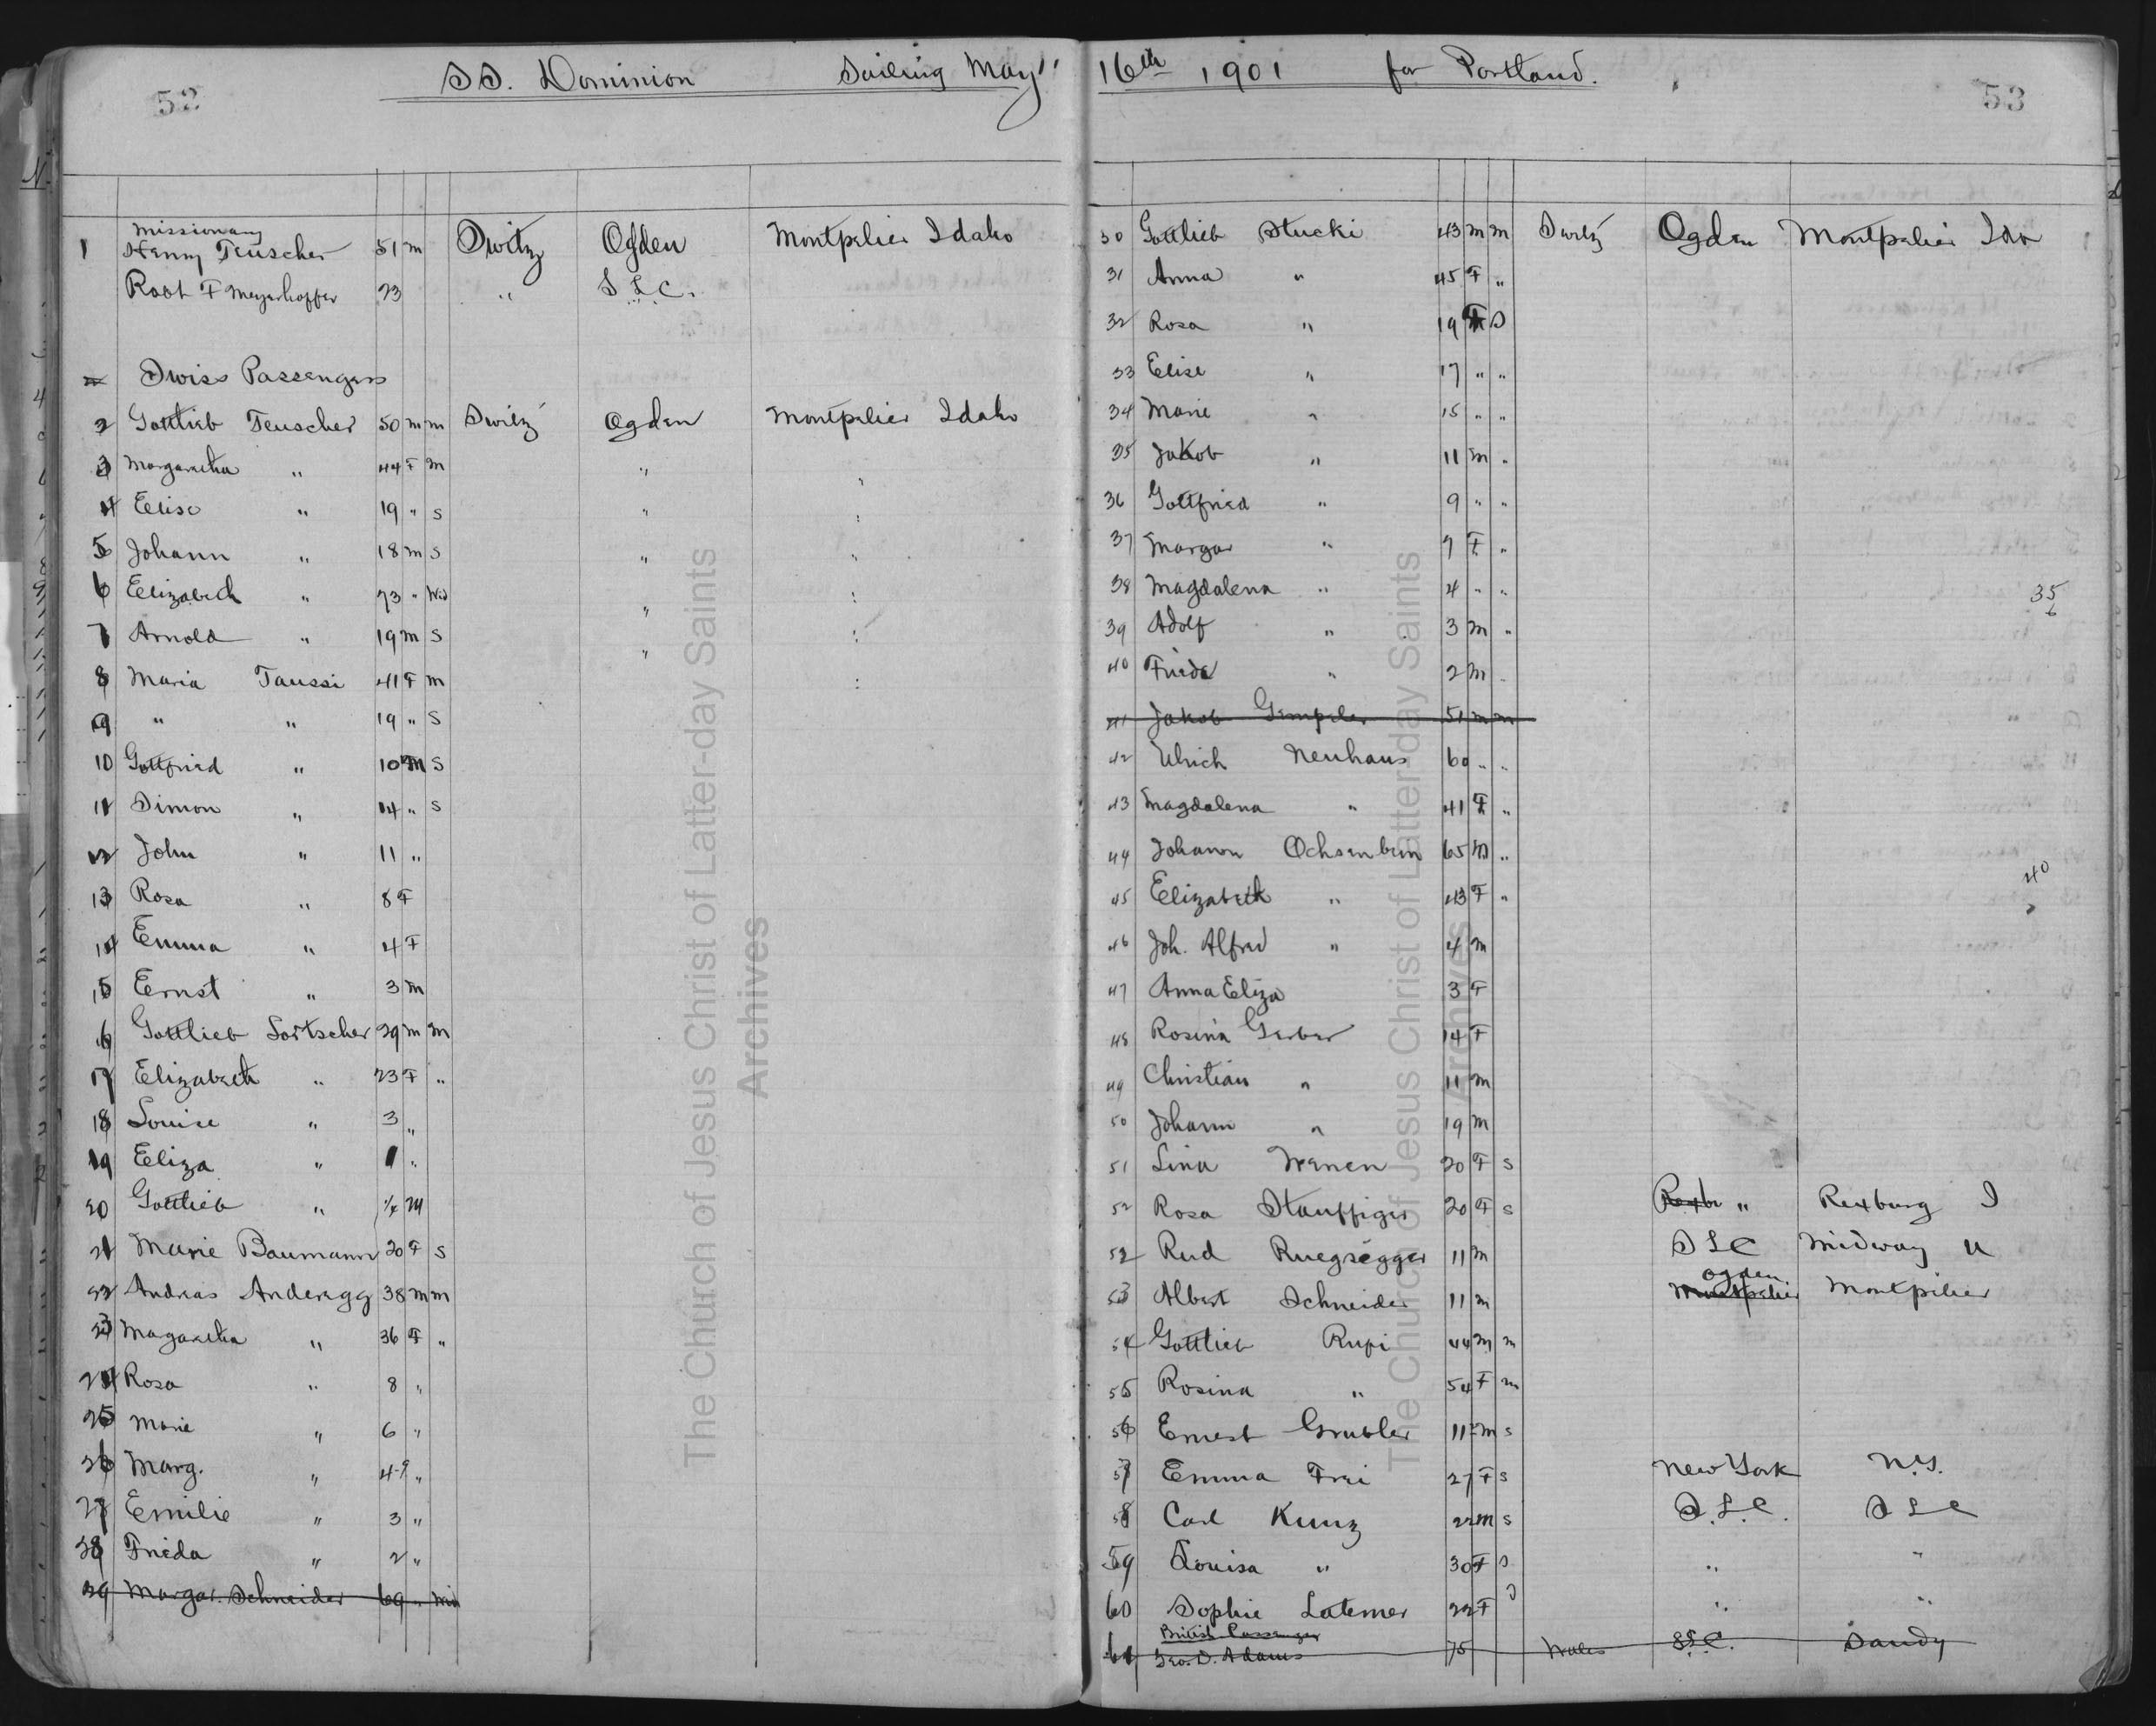 52
SS. Dominion Sailing May 16th 1901 for Portland.
53
Missionary
1 Henry Teuscher 51 m Switz Ogden Montpelier Idaho
Robt F Meyerhoffer 23 " S.L.C.
Swiss Passengers
2 Gottlieb Teuscher 50 m m Switz Ogden Montpelier Idaho
3 Margaretha " 44 F m " "
4 Elise " 19 " s " "
5 Johann " 18 m s " "
6 Elizabeth " 73 " Wid " "
7 Arnold " 19 m s " "
8 Maria Taussi 41 F m "
9 " " 19 " s
10 Gottfried " 10 m s
11 Simon " 14 " s
12 John " 11 "
13 Rosa " 8 F
14 Emma " 4 F
15 Ernst " 3 m
16 Gottlieb Lortscher 29 m m
17 Elizabeth " 23 F "
18 Louise " 3 "
19 Eliza " 1 "
20 Gottlieb " m
21 Marie Baumann 20 F s
22 Andreas Anderegg 38 m m
23 Magaretha " 36 F "
24 Rosa " 8 "
25 Marie " 6 "
26 Marg. " 4 "
27 Emilie " 3 "
28 Frieda " 2 "
29 Margar. Schneider 69 " Wid
30 Gottlieb Stucki 43 m m Switz Ogden Montpelier Ida
31 Anna " 45 F "
32 Rosa " 19 F S
33 Elise " 17 " "
34 Marie " 15 " "
35 Jakob " 11 m "
36 Gottfried " 9 " "
37 Margar " 7 F "
38 Magdalena " 4 " "
35
6
39 Adolf " 3 m "
40 Frieda " 2 m "
41 Jakob Gempeler 51 m m
42 Ulrich Neuhaus 60 " "
43 Magdalena " 41 F "
44 Johann Ochsenbein 65 m "
40
45 Elizabeth " 43 F "
46 Joh. Alfred " 4 m
47 Anna Eliza 3 F
48 Rosina Gerber 14 F
49 Christian " 11 m
50 Johann " 19 m
51 Lina 20 F s
52 Rosa Stauffiger 20 F s Rexbu " Rexburg I
52 Rud Ruegsegger 11 m S L C Midway U
Ogden
53 Albert Schneider 11 m Montpelier Montpelier
54 Gottlieb Rupi 44 m m
55 Rosina " 54 F m
56 Ernest Grubler 11 m s
57 Emma Frei 27 F s New York N.Y.
58 Carl Kunz 22 m s S.L.C. S L C
59 Louisa " 30 F S " "
60 Sophie Latemer 22 F S " "
British Passenger
61 Geo. D. Adams 75 Wales S.L.C. Sandy
The Church of Jesus Christ of Latter-day Saints
Archives
The Church of Jesus Christ of Latter-day Saints
Archives